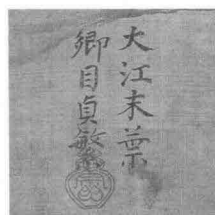 大江末葉
郷目貞敏